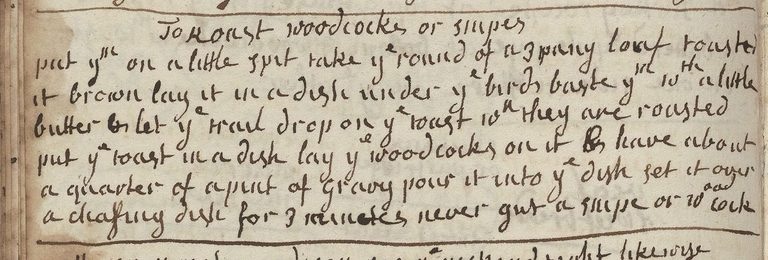 To Roast woodcocks or snipes
put yᵐ on a little spit take yᵉ round of a 3 pany loaf toasted
it brown lay it in a dish under yᵉ birds baste yᵐ wᵗʰ a little
butter & let yᵉ trail drop on yᵉ toast wⁿ they are roasted
put yᵉ toast in a dish lay yᵉ woodcocks on it & have about
a quarter of a pint of gravy pour it into yᵉ dish set it over
a chafing dish for 3 minetes never gut a snipe or wᵒᵒᵈcock
likewise